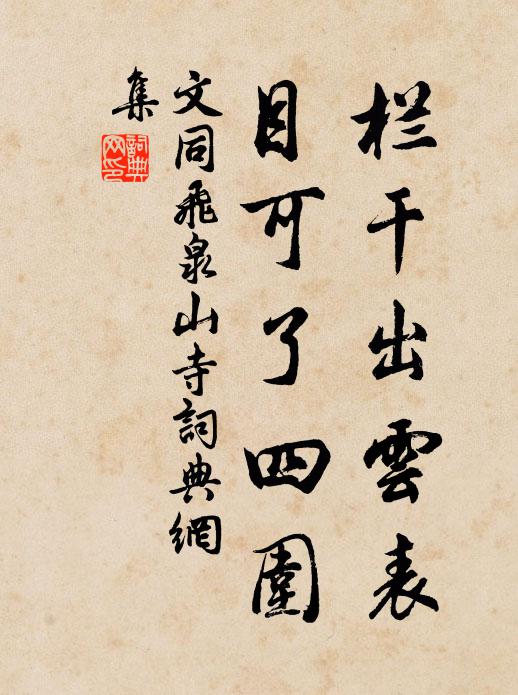 栏干出雲表
目可了四圍
文同飛泉山寺詞典網
集
詞典网印